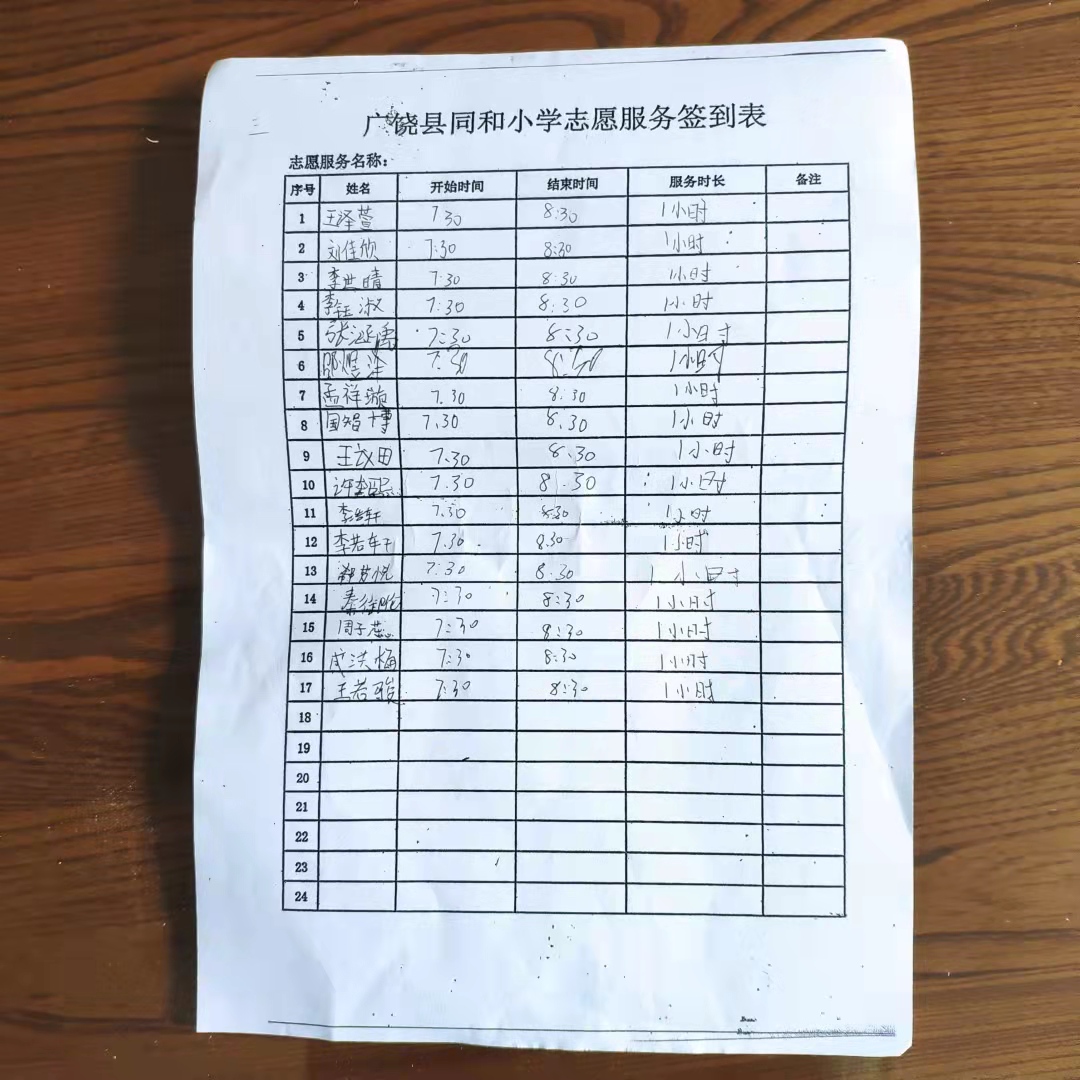 三
广饶县同和小学志愿服务签到表
志愿服务名称：
序号 姓名 开始时间 结束时间 服务时长 备注
1 王泽萱 7:30 8:30 1小时
2 刘佳欣 7:30 8:30 1小时
3 李世晴 7:30 8:30 1小时
4 李钰淑 7:30 8:30 1小时
5 7:30 8:30 1小时
6 7:30 8:30 1小时
7 孟祥璇 7.30 8.30 1小时
8 国智博 7.30 8.30 1小时
9 7.30 8.30 1小时
10 7.30 8.30 1小时
11 7.30 8:30 1小时
12 7.30 8.30 1小时
13 7:30 8.30 1小时
14 7:30 8:30 1小时
15 周子蕊 7:30 8:30 1小时
16 成洪梅 7:30 8:30 1小时
17 王若骏 7:30 8:30 1小时
18
19
20
21
22
23
24